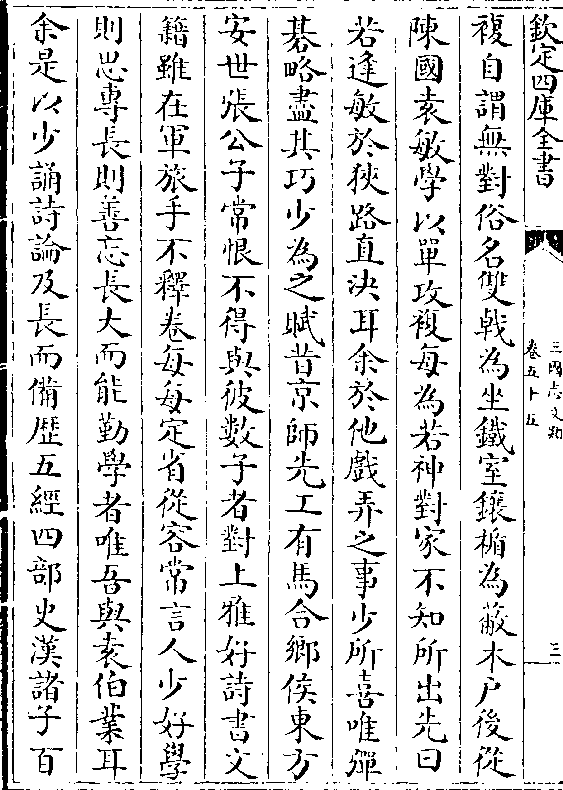 欽定四庫全書
三國志文類
卷五十五
三
複自謂無對俗名雙㦸為坐鐵室鑲楯為蔽木户後從
陳國袁敏學以單攻複每為若神對家不知所出先曰
若逢敏於狹路直決耳余於他戲弄之事少所喜唯彈
棊略盡其巧少為之賦昔京師先工有馬合鄉侯東方
安世張公子常恨不得與彼數子者對上雅好詩書文
籍雖在軍旅手不釋卷每每定省從容常言人少好學
則思專長則善忘長大而能勤學者唯吾與袁伯業耳
余是以少誦詩論及長而備歷五經四部史漢諸子百